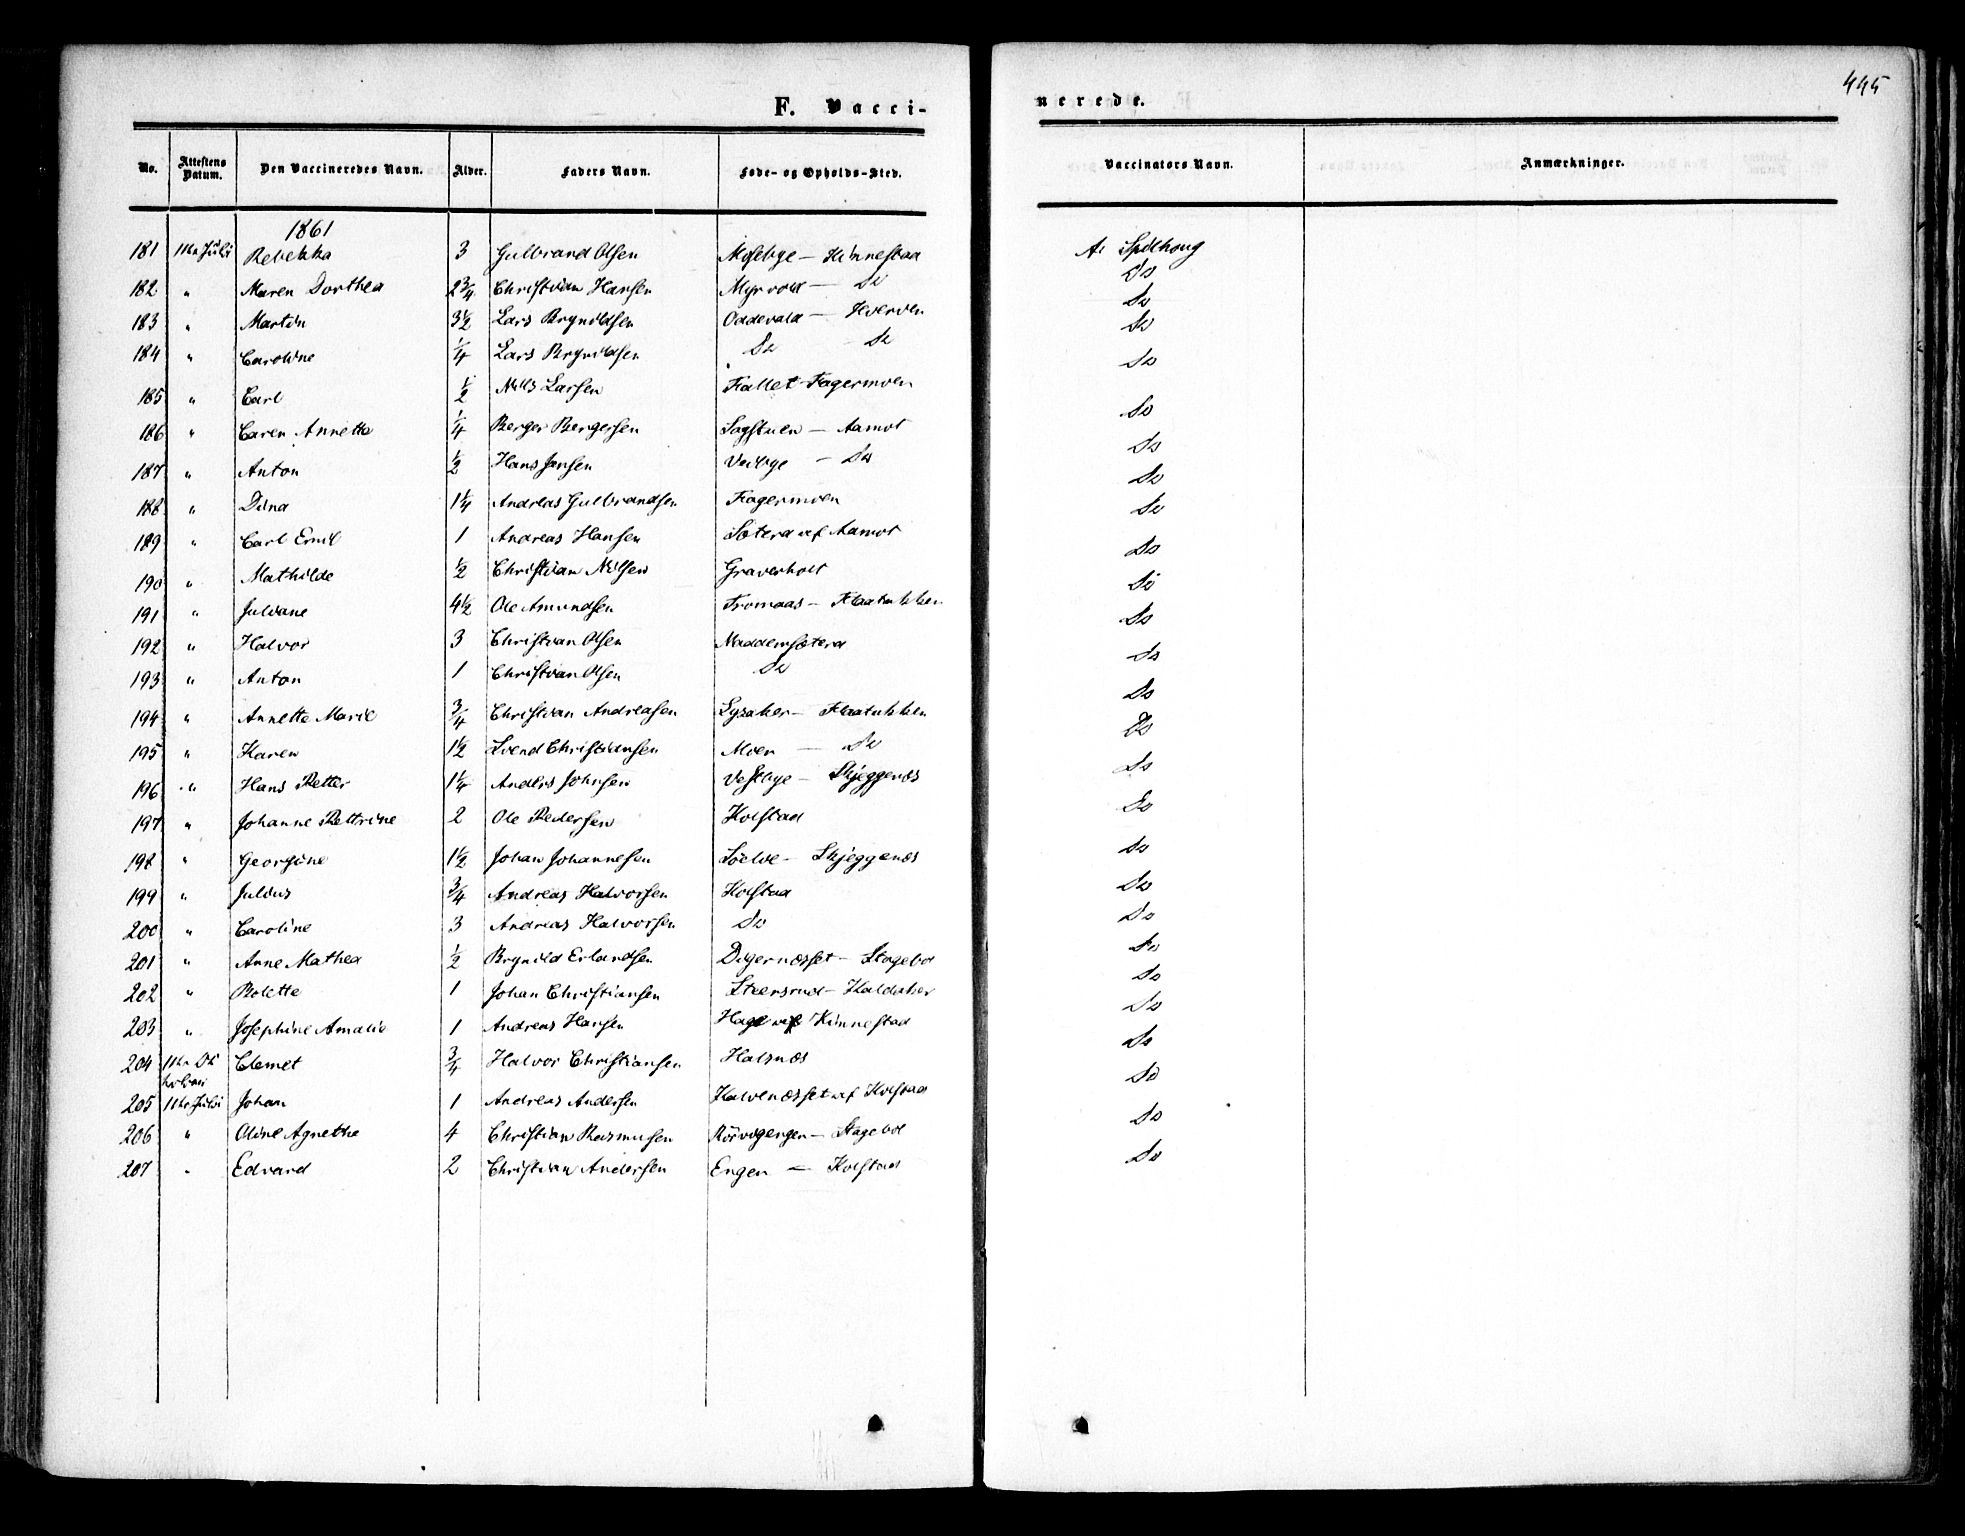 445
F. Vacci-
nerede.
No. Attestens Datum. Den Vaccineredes Navn. Alder. Faders Navn. Føde- og Opholds-Sted. Vaccinators Navn. Anmærkninger.
1861
181 11te Juli Rebekka 3 Gulbrand Olsen Mosebye - Kinnestad A. Spilhoug
182 " Maren Dorthea 2 3/4 Christian Hansen Myrvold - Do Do
183 " Martin 3 1/2 Lars Brynildsen Oddevald - Hverven Do
184 " Caroline 1/4 Lars Brynildsen Do - Do Do
185 " Carl 1/2 Nils Larsen Fallet - Fagermoen Do
186 " Caren Annette 1/4 Berger Bergersen Sagstuen - Aamot Do
187 " Anton 1/2 Hans Jensen Vedbye - Do Do
188 " Dina 1 1/4 Andreas Gulbrandsen Fagermoen Do
189 " Carl Emil 1 Andreas Hansen Sætera af Aamot Do
190 " Mathilde 1/2 Christian Nilsen Graverholt Do
191 " Juliane 4 1/2 Ole Amundsen Fromaas - Flaatukken Do
192 " Halvor 3 Christian Olsen Naddemsætera Do
193 " Anton 1 Christian Olsen Do Do
194 " Annette Marie 3/4 Christian Andreasen Lysaker - Flaatukken Do
195 " Karen 1 1/2 Svend Christiansen Moen - Do Do
196 " Hans Petter 1 1/4 Anders Johnsen Vestbye - Skjeggenæs Do
197 " Johanne Pettrine 2 Ole Pedersen Kolstad Do
198 " Georgine 1 1/2 Johan Johannesen Sølve - Skjeggenæs Do
199 " Julius 3/4 Andreas Halvorsen Kolstad Do
200 " Caroline 3 Andreas Halvorsen Do Do
201 " Anne Mathea 1/2 Brynild Erlandsen Digernæsset - Stagebøl Do
202 " Bolette 1 Johan Christiansen Steensrud - Kaldaker Do
203 " Josephine Amalie 1 Andreas Hansen Hage af Kinnestad Do
204 11te Oktober Clemet 3/4 Halvor Christiansen Halsnæs Do
205 11te Juli Johan 1 Andreas Andersen Kalvenæsset af Kolstad Do
206 " Oline Agnethe 4 Christian Rasmusen Rørvigengen - Stagebøl Do
207 " Edvard 2 Christian Andersen Engen - Kolstad Do